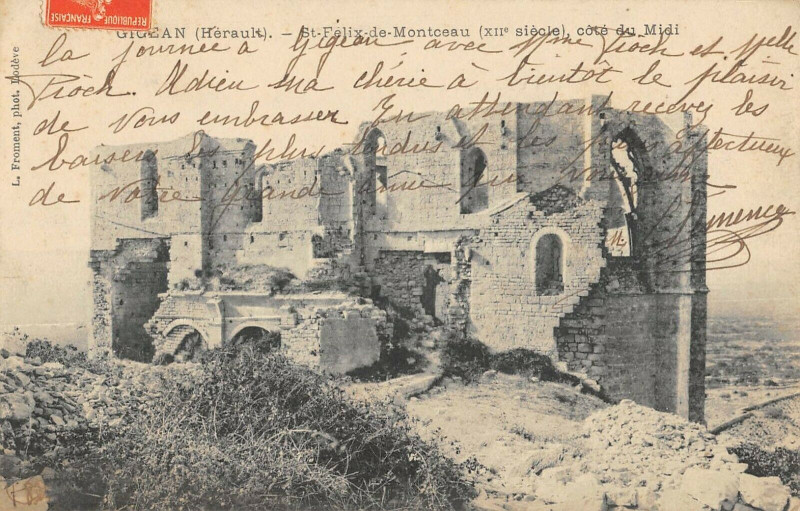 REPUBLIQUE FRANÇAISE
GIGEAN (Hérault). - St-Félix-de-Montceau (XIIe siècle), côté du Midi
L. Froment, phot. Lodève
la journée à Gigean avec Mme Pioch et Melle
Pioch. Adieu ma chérie à bientôt le plaisir
de vous embrasser. En attendant recevez les
baisers les plus tendres et les plus affectueux
de votre grande amie